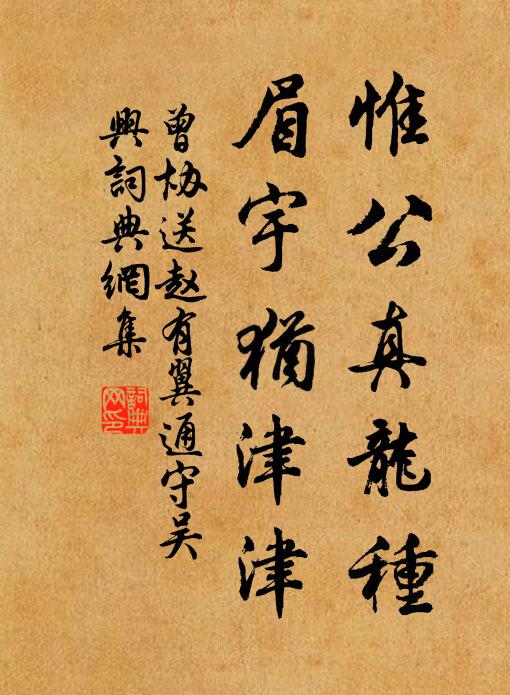 惟公真龍種
眉宇猶津津
曾协送赵有翼通守吴
興詞典網集
詞典
网印